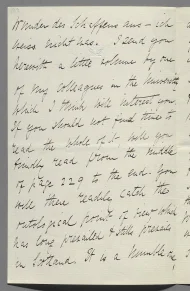 Wunder des Schaffens aus – ich
weiss nicht was. I send you
herewith a little volume by one
of my colleagues in the University
which I think will interest you.
If you should not find time to
read the whole of it will you
kindly read from the middle
of page 229 to the end. You
will there readily catch the
ontological point of view which
has long prevailed & still prevails
in Scotland. It is a humble one